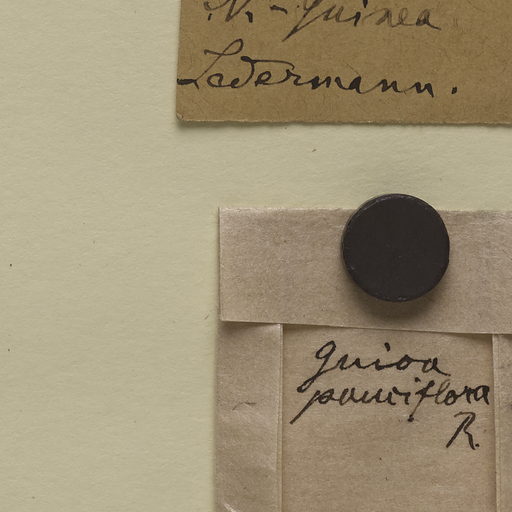 N.-Guinea
Ledermann.
Guioa
pauciflora
R.